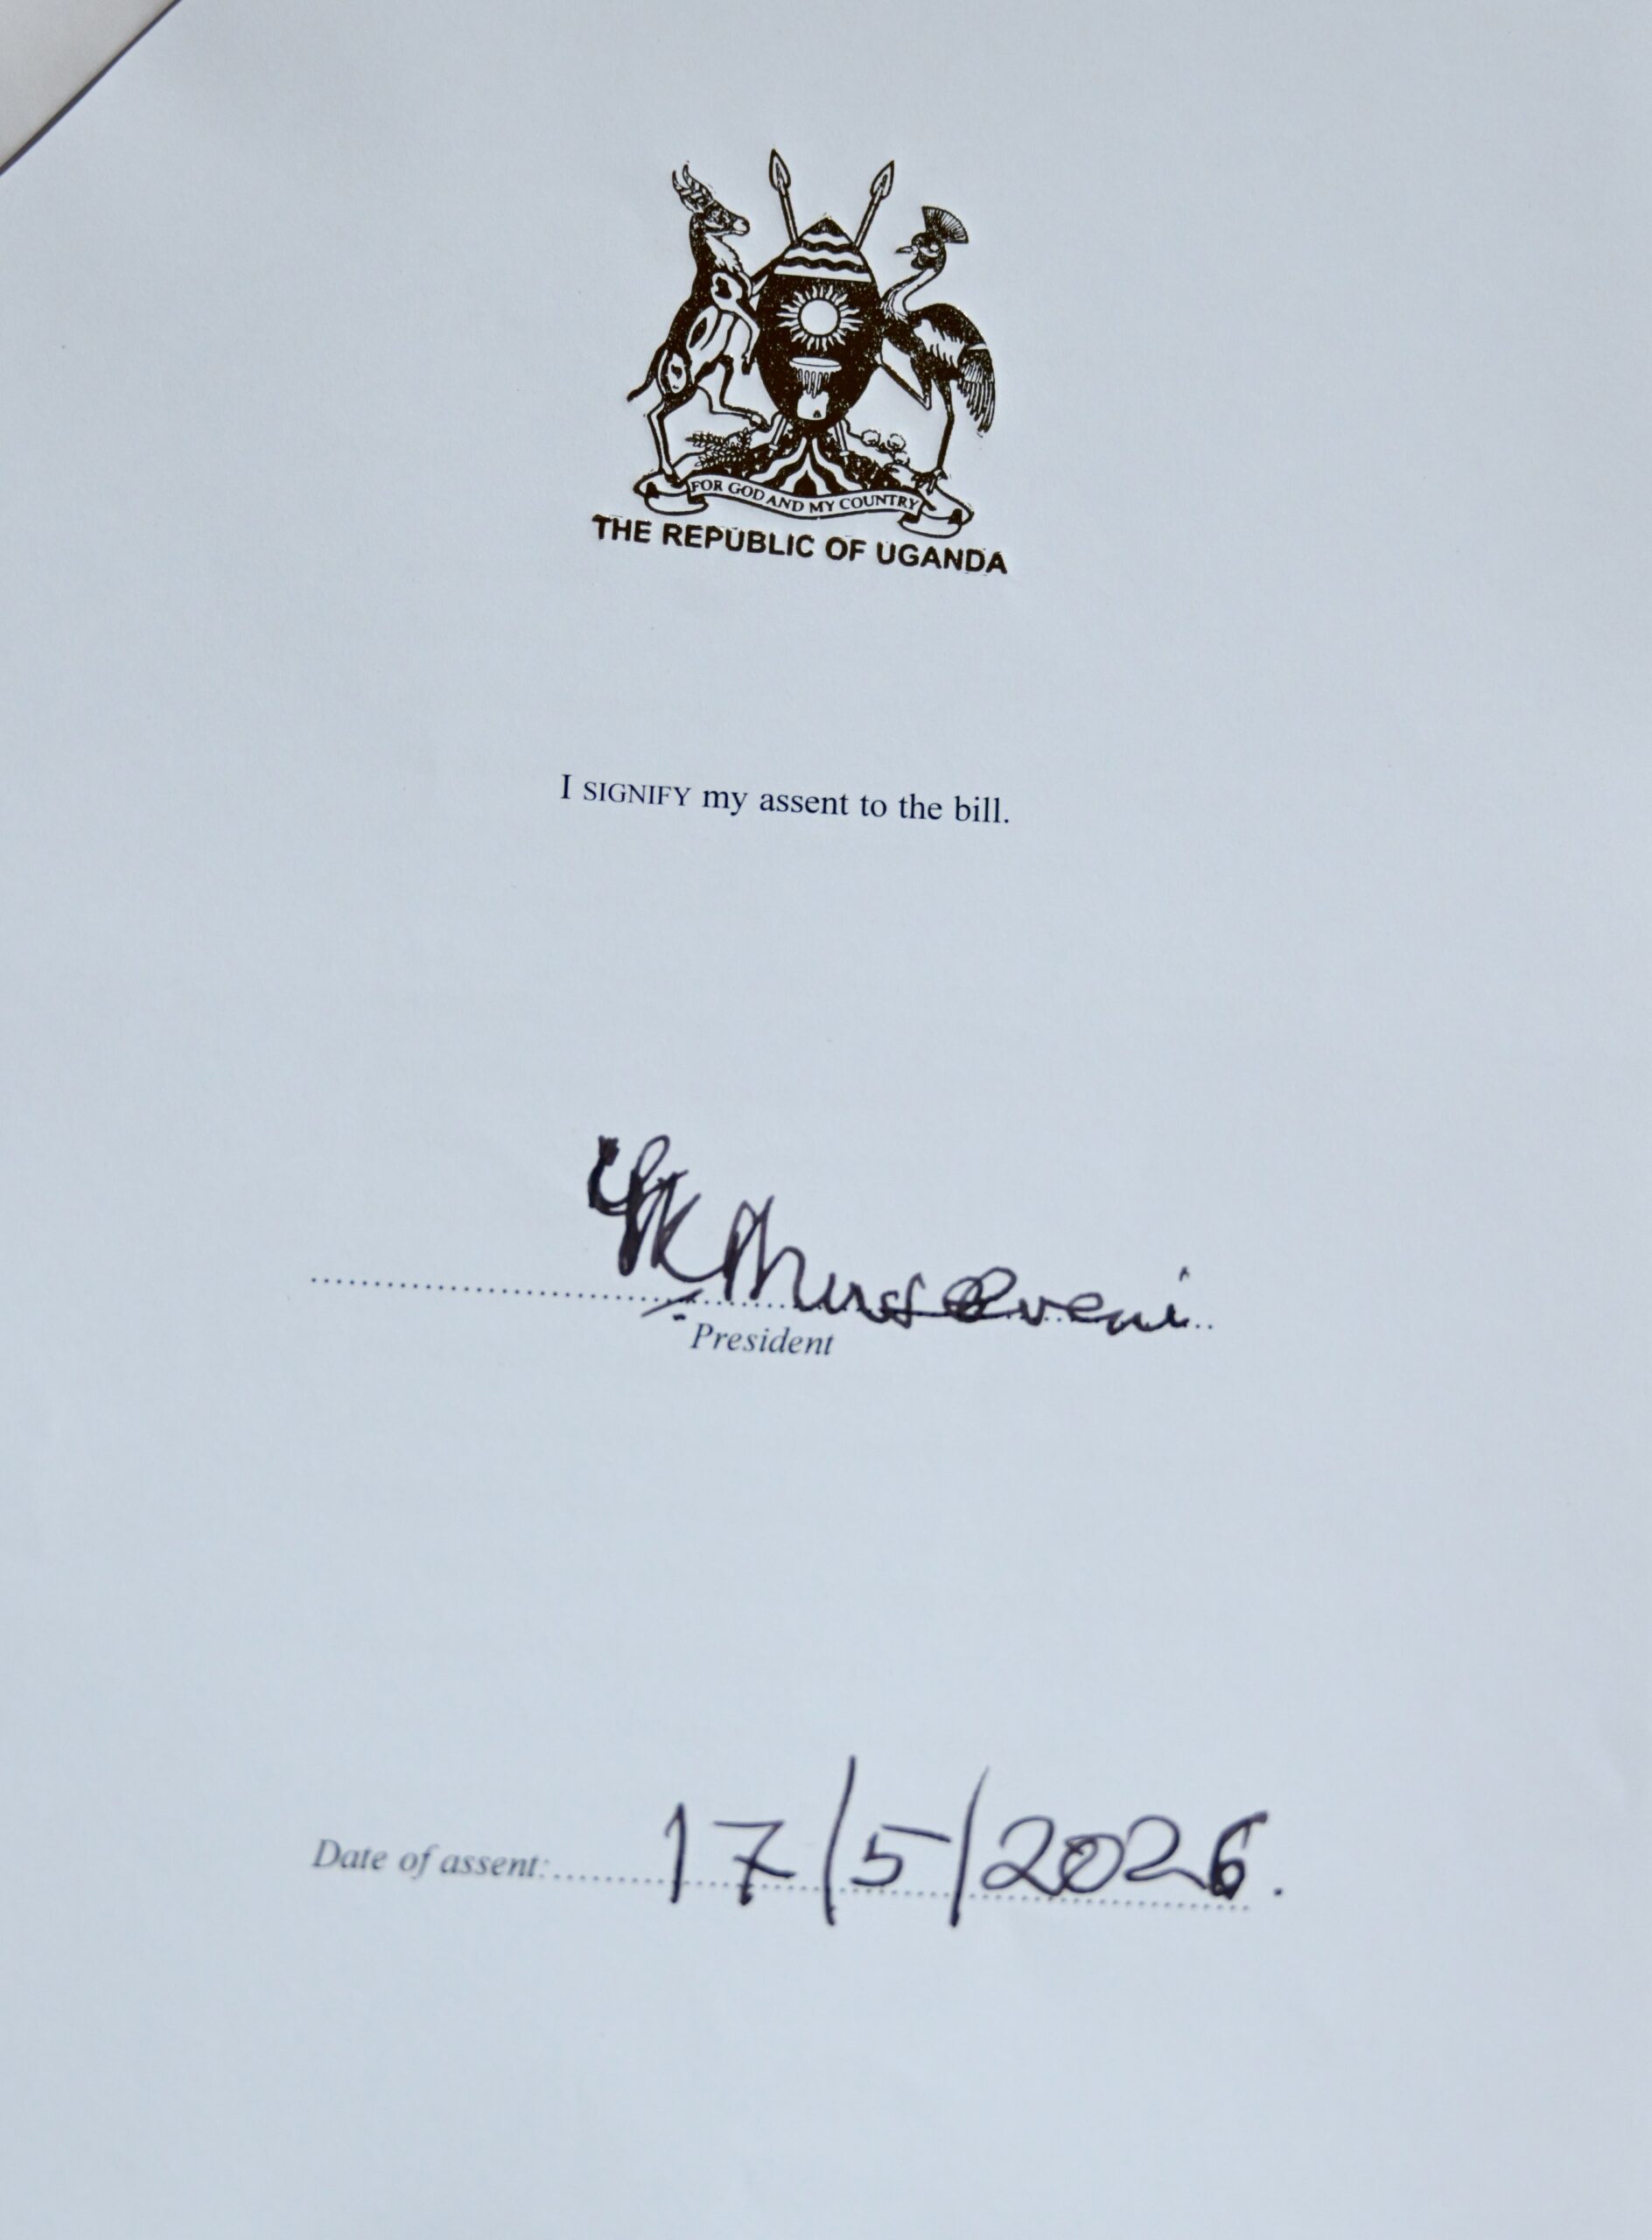 FOR GOD AND MY COUNTRY
THE REPUBLIC OF UGANDA
I SIGNIFY my assent to the bill.
YK Museveni
President
Date of assent: 17/5/2026.